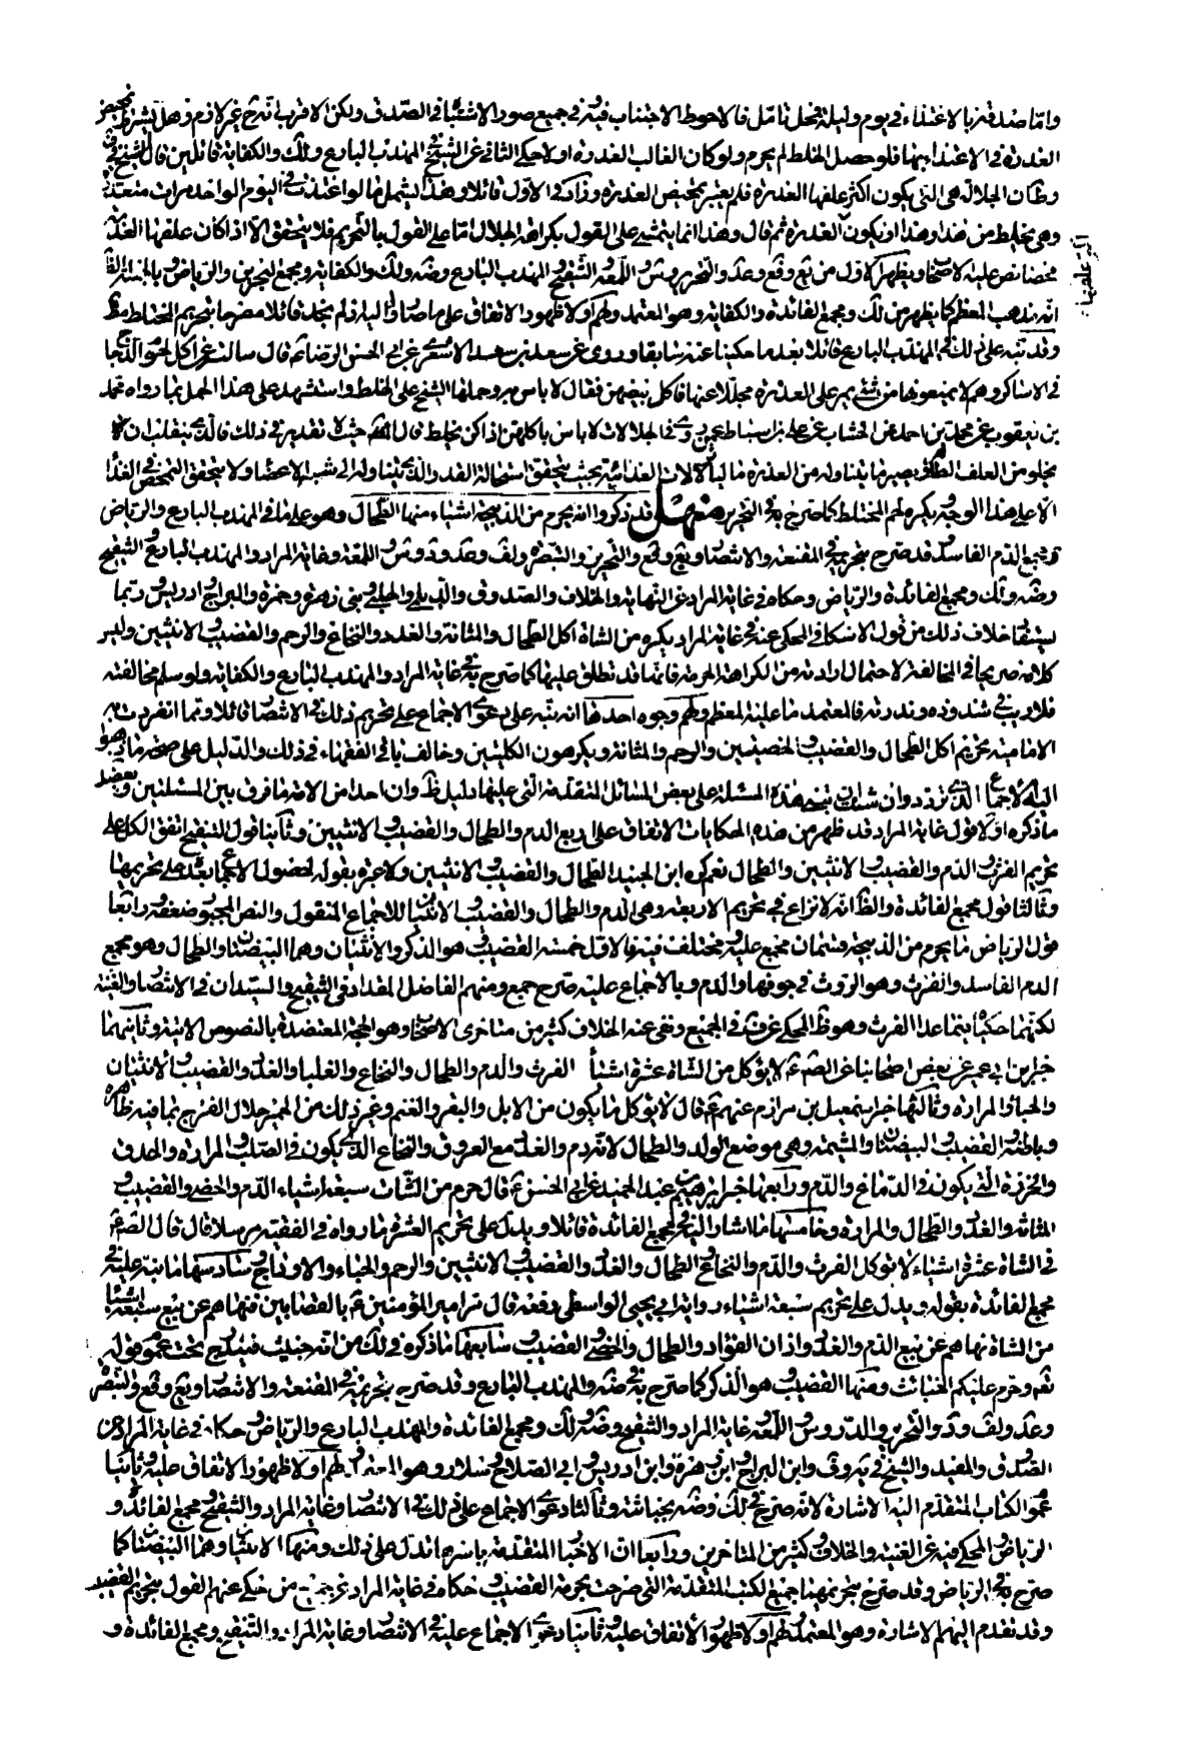 واما صدقه بالاغتذاء في يوم وليلة فمحل تامل فالاحوط الاجتناب فيه في جميع صور الاشتباه في الصدق ولكن الاقرب انه غير لازم وهل يشترط تمحيض
العذرة في الاغتذاء بها فلو حصل الخلط لم يحرم ولو كان الغالب العذرة او لا حكى الثاني عن الشيخ في المهذب البارع ولك والكفاية قائلين قال الشيخ في
وط ان الجلالة هى التى يكون اكثر علفها العذرة فلم يعتبر تمحيض العذرة وزاد في الاول قائلا وهذا يشمل ما لو اغتذت في اليوم الواحد مرات متعددة
وهى يخلط من هذا وهذا او يكون العذرة ثم قال وهذا انما يتمشى على القول بكراهة الجلال اما على القول بالتحريم فلا يتحقق الا اذا كان علفها العذرة
محضا نص عليه الاصحاب ويظهر الاول من يع وفع وعد والتحرير وس واللمعة والتنقيح والمهذب البارع وضه ولك والكفاية ومجمع البحرين والرياض
انه مذهب المعظم كما يظهر من لك ومجمع الفائدة والكفاية وهو المعتمد ولهم اولا ظهور الاتفاق على ما صاروا اليه اذ لم نجد قائلا مصرحا بتحريم المختلط مط
وقد نبه على ذلك في المهذب البارع قائلا بعد ما حكينا عنه سابقا وروى عن سعد بن سعد الاشعرى عن ابي الحسن الرضا ع قال سالته عن اكل لحوم الدجاج
في الدساكر وهم لا يمنعونها من شئ يمر على العذرة مخلا عنها فاكل بيضهن فقال لا باس به وحملها الشيخ على الخلط واستشهد على هذا الحمل بما رواه محمد
بن يعقوب عن محمد بن احمد عن الخشاب عن على بن اسباط عمن روى في الجلالات لا باس باكلهن اذا كن يخلط قال
يخلو من العلف الطاهر بصير ما يتناوله من العذرة
الا على هذا الوجه بكره لحم المختلط كما صرح به في التحرير منهل قد ذكروا انه يحرم من الذبيحة اشياء منها الطحال وهو على ما في المهذب البارع والرياض
ومجمع الدم الفاسد قد صرح بتحريمه في المقنعة والانتصار ويع وفع والتحرير والتبصرة ولف وعد ود وس واللمعة وغاية المراد والمهذب البارع والتنقيح
وضه ولك ومجمع الفائدة والرياض وحكاه في غاية المراد عن النهاية والخلاف والصدوق والديلمى والحلبى وبنى زهرة وحمزة والبراج وادريس وربما
يستفاد خلاف ذلك من قول الاسكافى المحكى عنه في غاية المراد يكره من الشاة اكل الطحال والمثانة والغدد والنخاع والرحم والقضيب والانثيين وليس
كلامه صريحا في المخالفة لاحتمال ارادته من الكراهة الحرمة فانها قد تطلق عليها كما صرح به في غاية المراد والمهذب البارع والكفاية ولو سلم مخالفته
فلا ريب في شذوذه وندرته فالمعتمد ما عليه المعظم ولهم وجوه احدها انه نبه على دعوى الاجماع على تحريم ذلك في الانتصار قائلا ومما انفردت به
الامامية تحريم اكل الطحال والقضيب والخصيتين والرحم والمثانة ويكرهون الكليتين وخالف باقى الفقهاء في ذلك والدليل على صحة ما ذهبوا
اليه الاجماع الذى تردد وان شئت ان تبنى هذه المسئلة على بعض المسائل المتقدمة التى عليها دليل ظ وان احدا من الامة ما فرق بين المسئلتين ويعضد
ما ذكره اولا قول غاية المراد قد ظهر من هذه الحكايات الاتفاق على اربع الدم والطحال والقضيب والانثيين وثانيا قول التنقيح اتفق الكل على
تحريم الفرث والدم والقضيب والانثيين والطحال نعم كره ابن الجنيد الطحال والقضيب والانثيين ولا عبرة بقوله لحصول الاجماع بعده على تحريمها
وثالثا قول مجمع الفائدة والظ انه لا نزاع في تحريم الاربعة وهى الدم والطحال والقضيب والانثيان للاجماع المنقول والنص المجبور ضعفه ورابعا
قول الرياض ما يحرم من الذبيحة قسمان مجمع عليه ومختلف فيه فالاول خمسة القضيب وهو الذكر والانثيان وهما البيضتان والطحال وهو مجمع
الدم الفاسد والفرث وهو الروث في جوفها والدم وبالاجماع عليه صرح جمع ومنهم الفاضل المقداد في التنقيح والسيدان في الانتصار والغنية
لكنهما حكياه فيما عدا الفرث وهو ظ المحكى عن ف في الجميع ونفى عنه الخلاف كثير من متاخرى الاصحاب وهو الحجة المعتضدة بالنصوص الاتية وثانيهما
خبر ابن ابي عمير عن بعض اصحابنا عن الص ع لا يؤكل من الشاة عشرة اشياء الفرث والدم والطحال والنخاع والعلباء والغدد والقضيب والانثيان
والحياء والمرارة وثالثها خبر اسمعيل بن مرازم عنهم ع قال لا يؤكل مما يكون من الابل والبقر والغنم وغير ذلك من لحمه حلال الفرج بما فيه ظاهره
وباطنه والقضيب والبيضتان والمشيمة وهى موضع الولد والطحال لانه دم والغدد مع العروق والنخاع الذى يكون في الصلب والمرارة والحدق
والخرزة التى يكون في الدماغ والدم ورابعها خبر ابراهيم بن عبد الحميد عن ابي الحسن ع قال حرم من الشاة سبعة اشياء الدم والخصى والقضيب
والمثانة والغدد والطحال والمرارة وخامسها ما اشار اليه في مجمع الفائدة قائلا ويدل على تحريم العشرة ما رواه في الفقيه مرسلا قال قال الص ع
في الشاة عشرة اشياء لا تؤكل الفرث والدم والنخاع والطحال والغدد والقضيب والانثيين والرحم والحياء والاوداج وسادسها ما نبه عليه في
مجمع الفائدة بقوله ويدل على تحريم سبعة اشياء رواية ابي يحيى الواسطى رفعه قال مر امير المؤمنين ع بالقصابين فنهاهم عن بيع سبعة اشياء
من الشاة نهاهم عن بيع الدم والغدد واذان الفؤاد والطحال والخصى والقضيب وسابعها ما ذكره في لك من انه خبيث فيندرج تحت عموم قوله
تعم وحرم عليكم الخبائث ومنها القضيب وهو الذكر كما صرح به في ضه والمهذب البارع وقد صرح بتحريمه في المقنعة والانتصار ويع وفع والتبصرة
وعد ولف ود والتحرير والدروس واللمعة وغاية المراد والتنقيح وضه ولك ومجمع الفائدة والمهذب البارع والرياض وحكاه في غاية المراد عن
الصدوق والمفيد والشيخ في يه وف وابن البراج وابن حمزة وابن ادريس وابي الصلاح وسلار وهو المعتمد لهم اولا ظهور الاتفاق عليه وثانيا
عموم الكتاب المتقدم اليه الاشارة لانه صرح في لك وضه بخباثته وثالثا دعوى الاجماع على ذلك في الانتصار وغاية المراد والتنقيح ومجمع الفائدة و
الرياض والمحكى فيه عن الغنية والخلاف وكثير من المتاخرين ورابعا ان الاخبار المتقدمة باسرها تدل على ذلك ومنها الانثيان وهما البيضتان كما
صرح به في الرياض وقد صرح بتحريمهما جميع الكتب المتقدمة التى صرحت بحرمة القضيب وحكاه في غاية المراد عن جميع من حكى عنهم القول بتحريم القضيب
وقد تقدم اليهم الاشارة وهو المعتمد لهم اولا ظهور الاتفاق عليه وثانيا دعوى الاجماع عليه في الانتصار وغاية المراد والتنقيح ومجمع الفائدة و